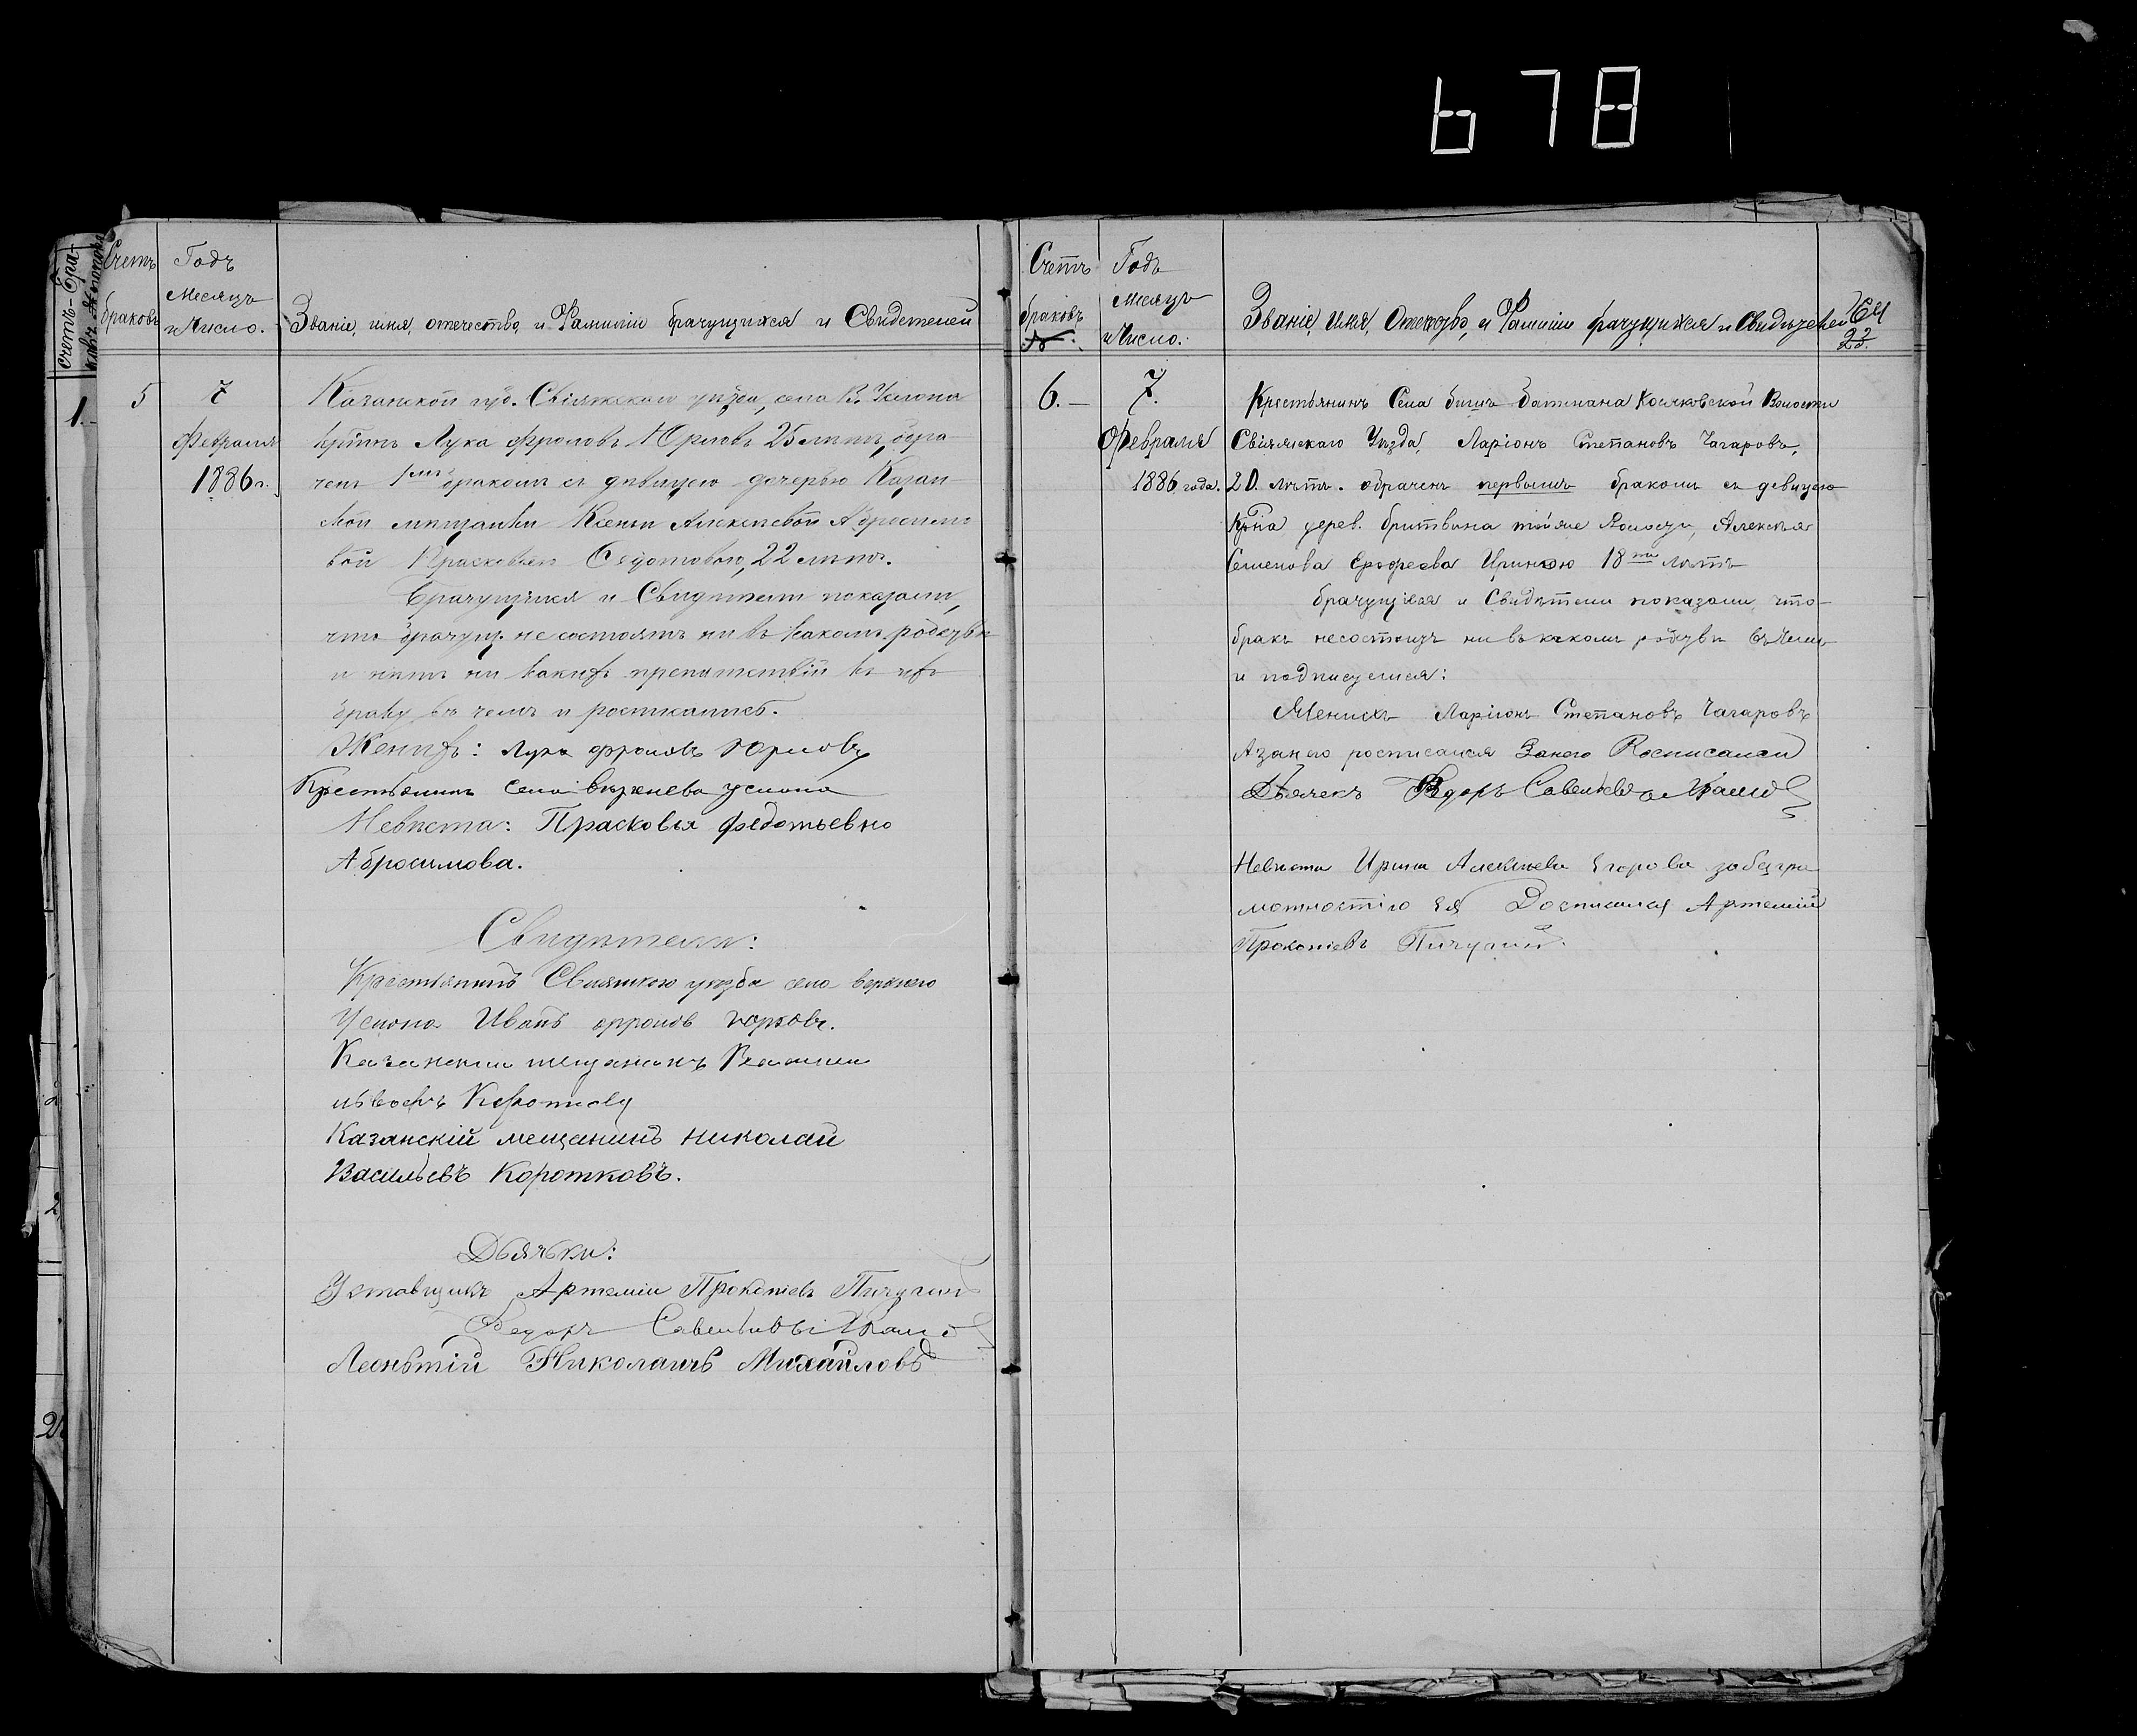 678
Счетъ браковъ
Годъ Месяцъ и Число.
Званіе, имя, отечество, и Фамиліи брачущихся и Свидетелей
1.
5
7 Февраля 1886 г.
Казанской губ. Свіяжскаго уѣзда, села В. Услона
Лука Фроловъ Юрловъ 25 лѣтъ, бра-
ченъ 1мъ бракомъ съ дѣвицею дочерью Казан-
ской мѣщанки Ксеньи Алексѣевой Абросимо
вой Прасковьею Федотовою, 22 лѣтъ.
Брачущіеся и Свидѣтели показали,
что брачущ. не состоятъ ни въ какомъ родствѣ
и нѣтъ ни какихъ препятствій къ
браку въ чемъ и
Женихъ: Лука фроловъ Юрловъ
Крестьянинъ села верхнева услона
Невѣста: Прасковья федотьевно
Абросимова.
Свидѣтели:
Крестянинъ села верхнего
Услона Иванъ
Казанскии
Казанскій мещанинъ николай
Васильевъ Коротковъ.
Дьячьки:
Уставщикъ Артемій Прокопіевъ Пичугинъ
Федоръ
Леоньтій Николаичъ Михайловъ
Счетъ браковъ
Годъ месяцъ и Число.
Званіе, Имя, Отечество, и Фамиліи брачущихся и Свидѣтелей
23.
6.
7. Февраля 1886 года.
Крестьянинъ Села Волости
Свіяжскаго Уѣзда, Ларіонъ Степановъ Чагаровъ,
20. лѣтъ. обраченъ первымъ бракомъ съ девицею
дерев. бритвина тойже Волости, Алексѣя
Семенова Ириною 18 лѣтъ
брачущіеся и Свидѣтели показали, что
бракъ несостоитъ ни въ какомъ родствѣ въ чемъ
и подписуемся:
Женихъ Ларіонъ Степановъ Чагаровъ
Азанего росписался Занего Росписался
Дьячекъ Федоръ
Невѣста Ирина Алексѣева забезгра
мотностію ея Росписался Артемій
Прокопіевъ Пичугинъ.